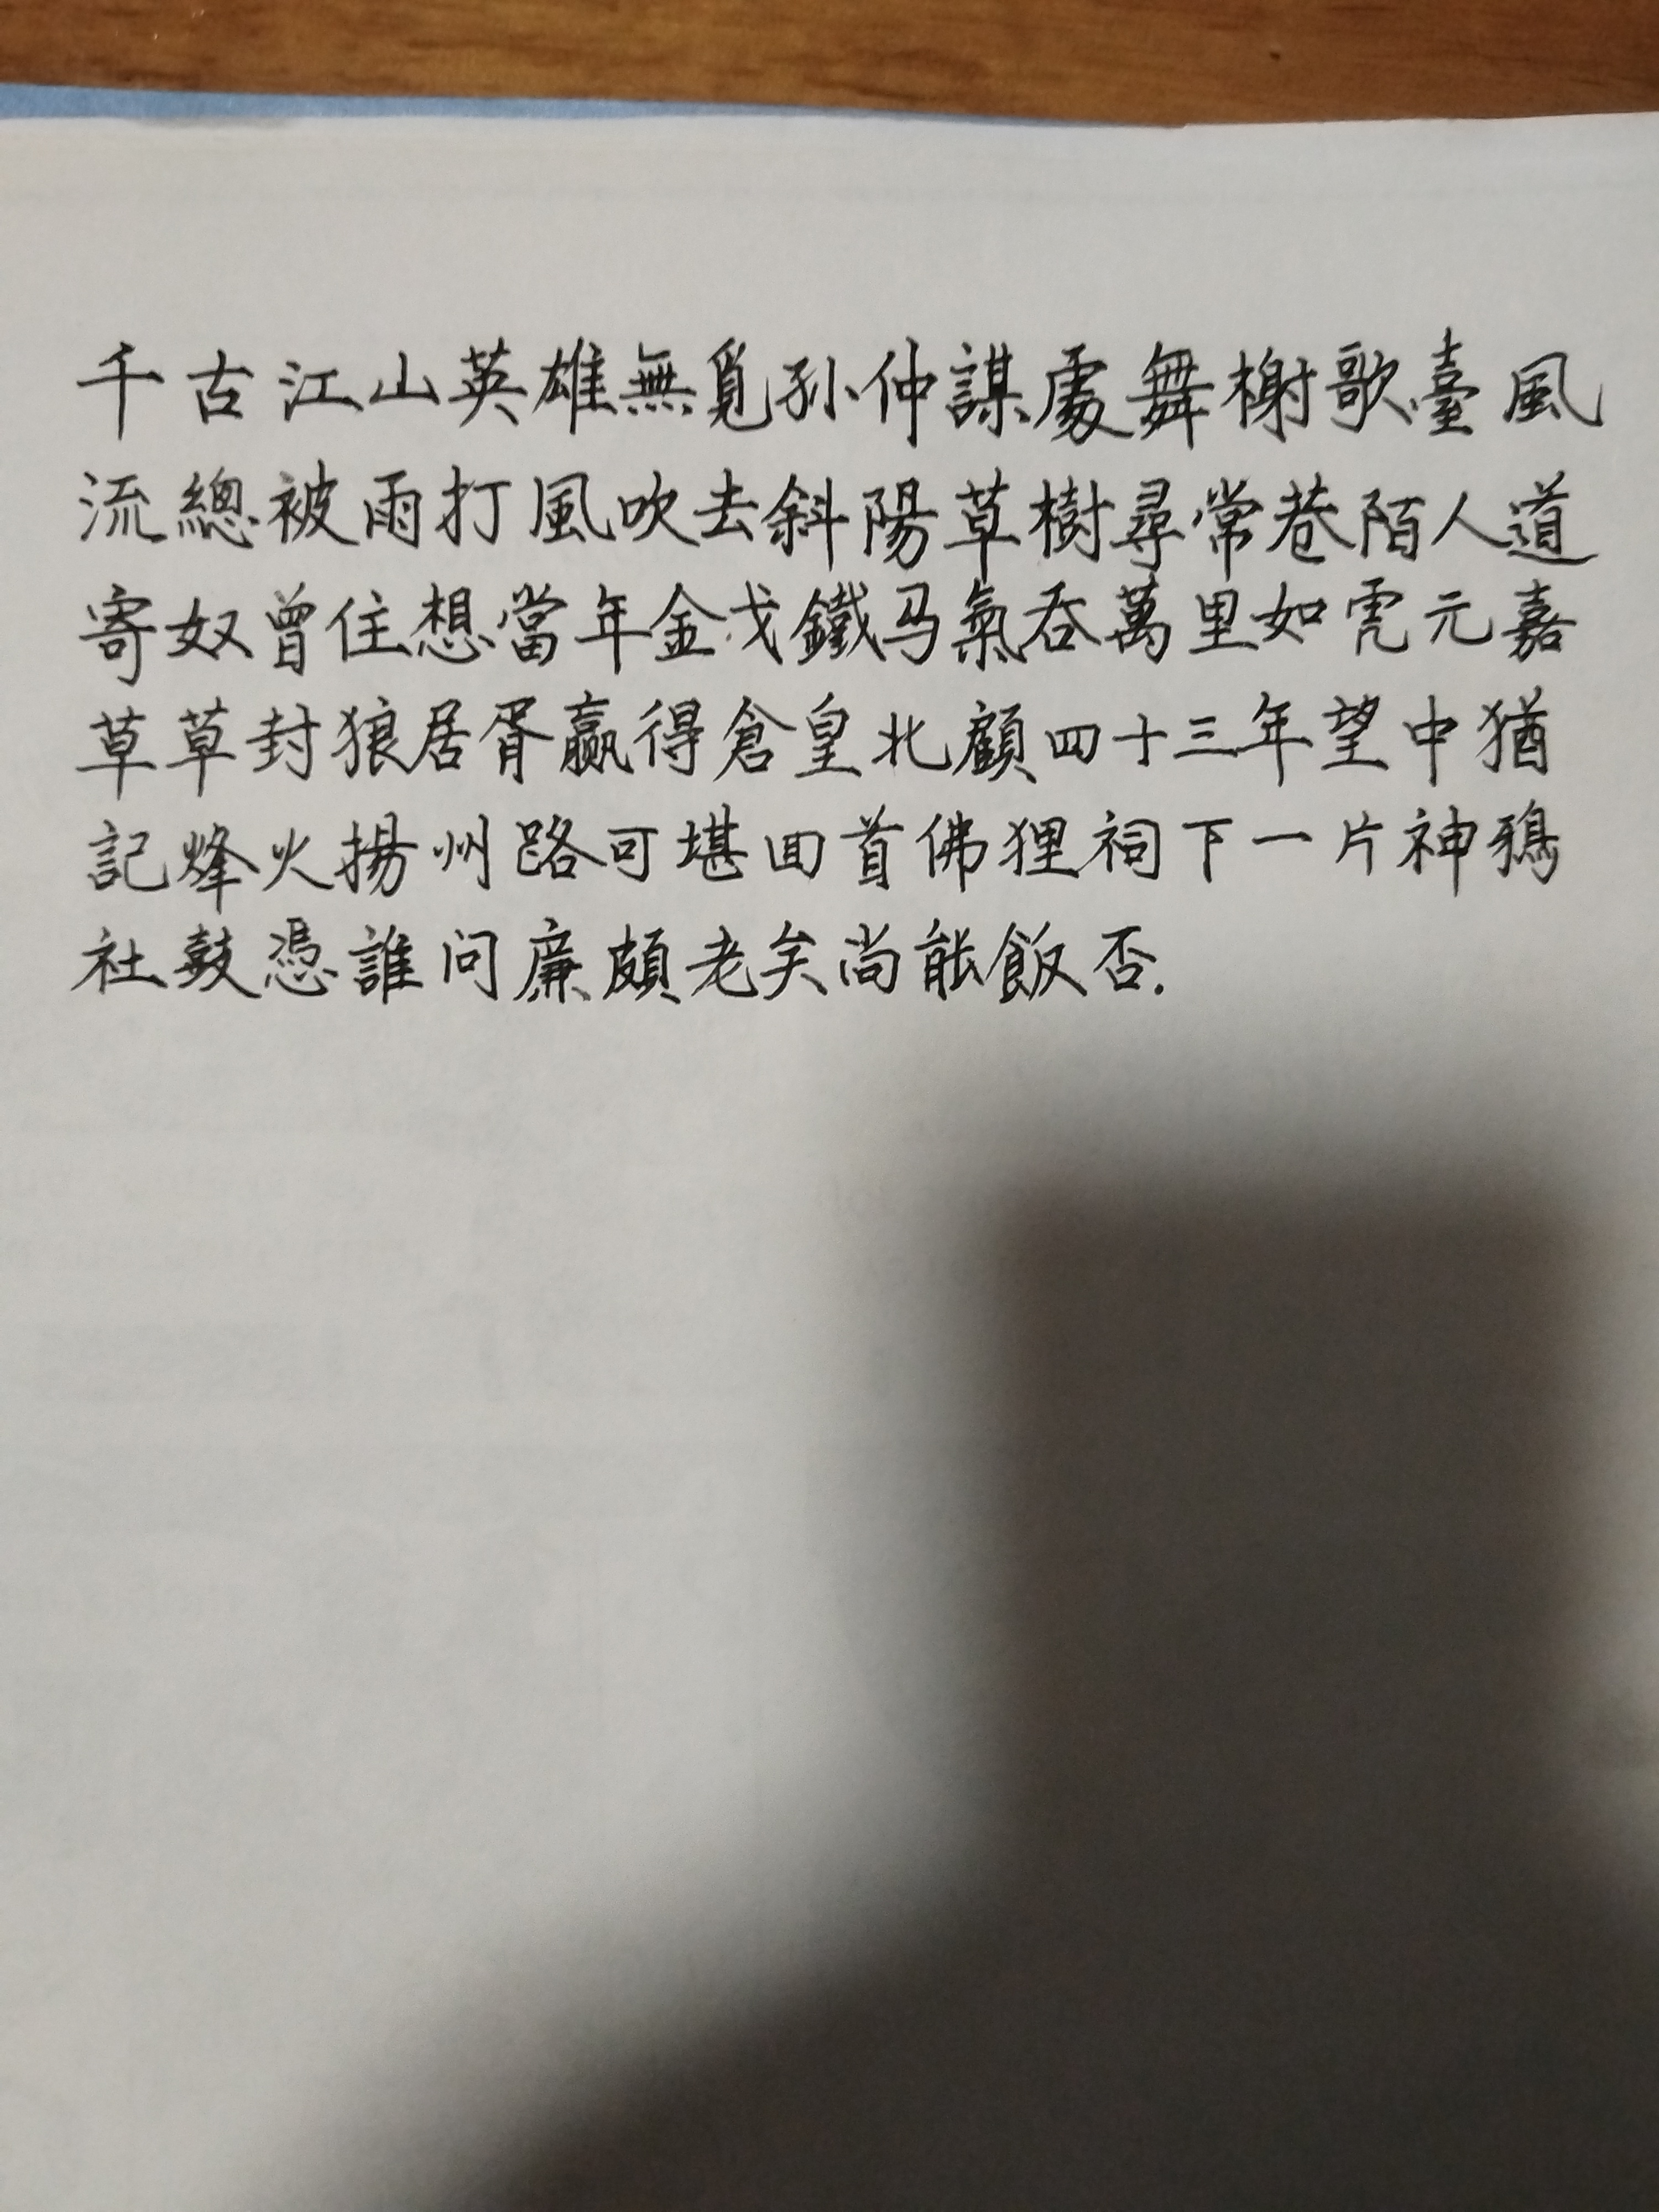 千古江山英雄無覓孙仲謀處舞榭歌臺風
流總被雨打風吹去斜陽草樹尋常巷陌人道
寄奴曾住想當年金戈鐵马氣吞萬里如虎元嘉
草草封狼居胥贏得倉皇北顧四十三年望中猶
記烽火揚州路可堪回首佛狸祠下一片神鴉
社鼓憑誰问廉頗老矣尚能飯否.